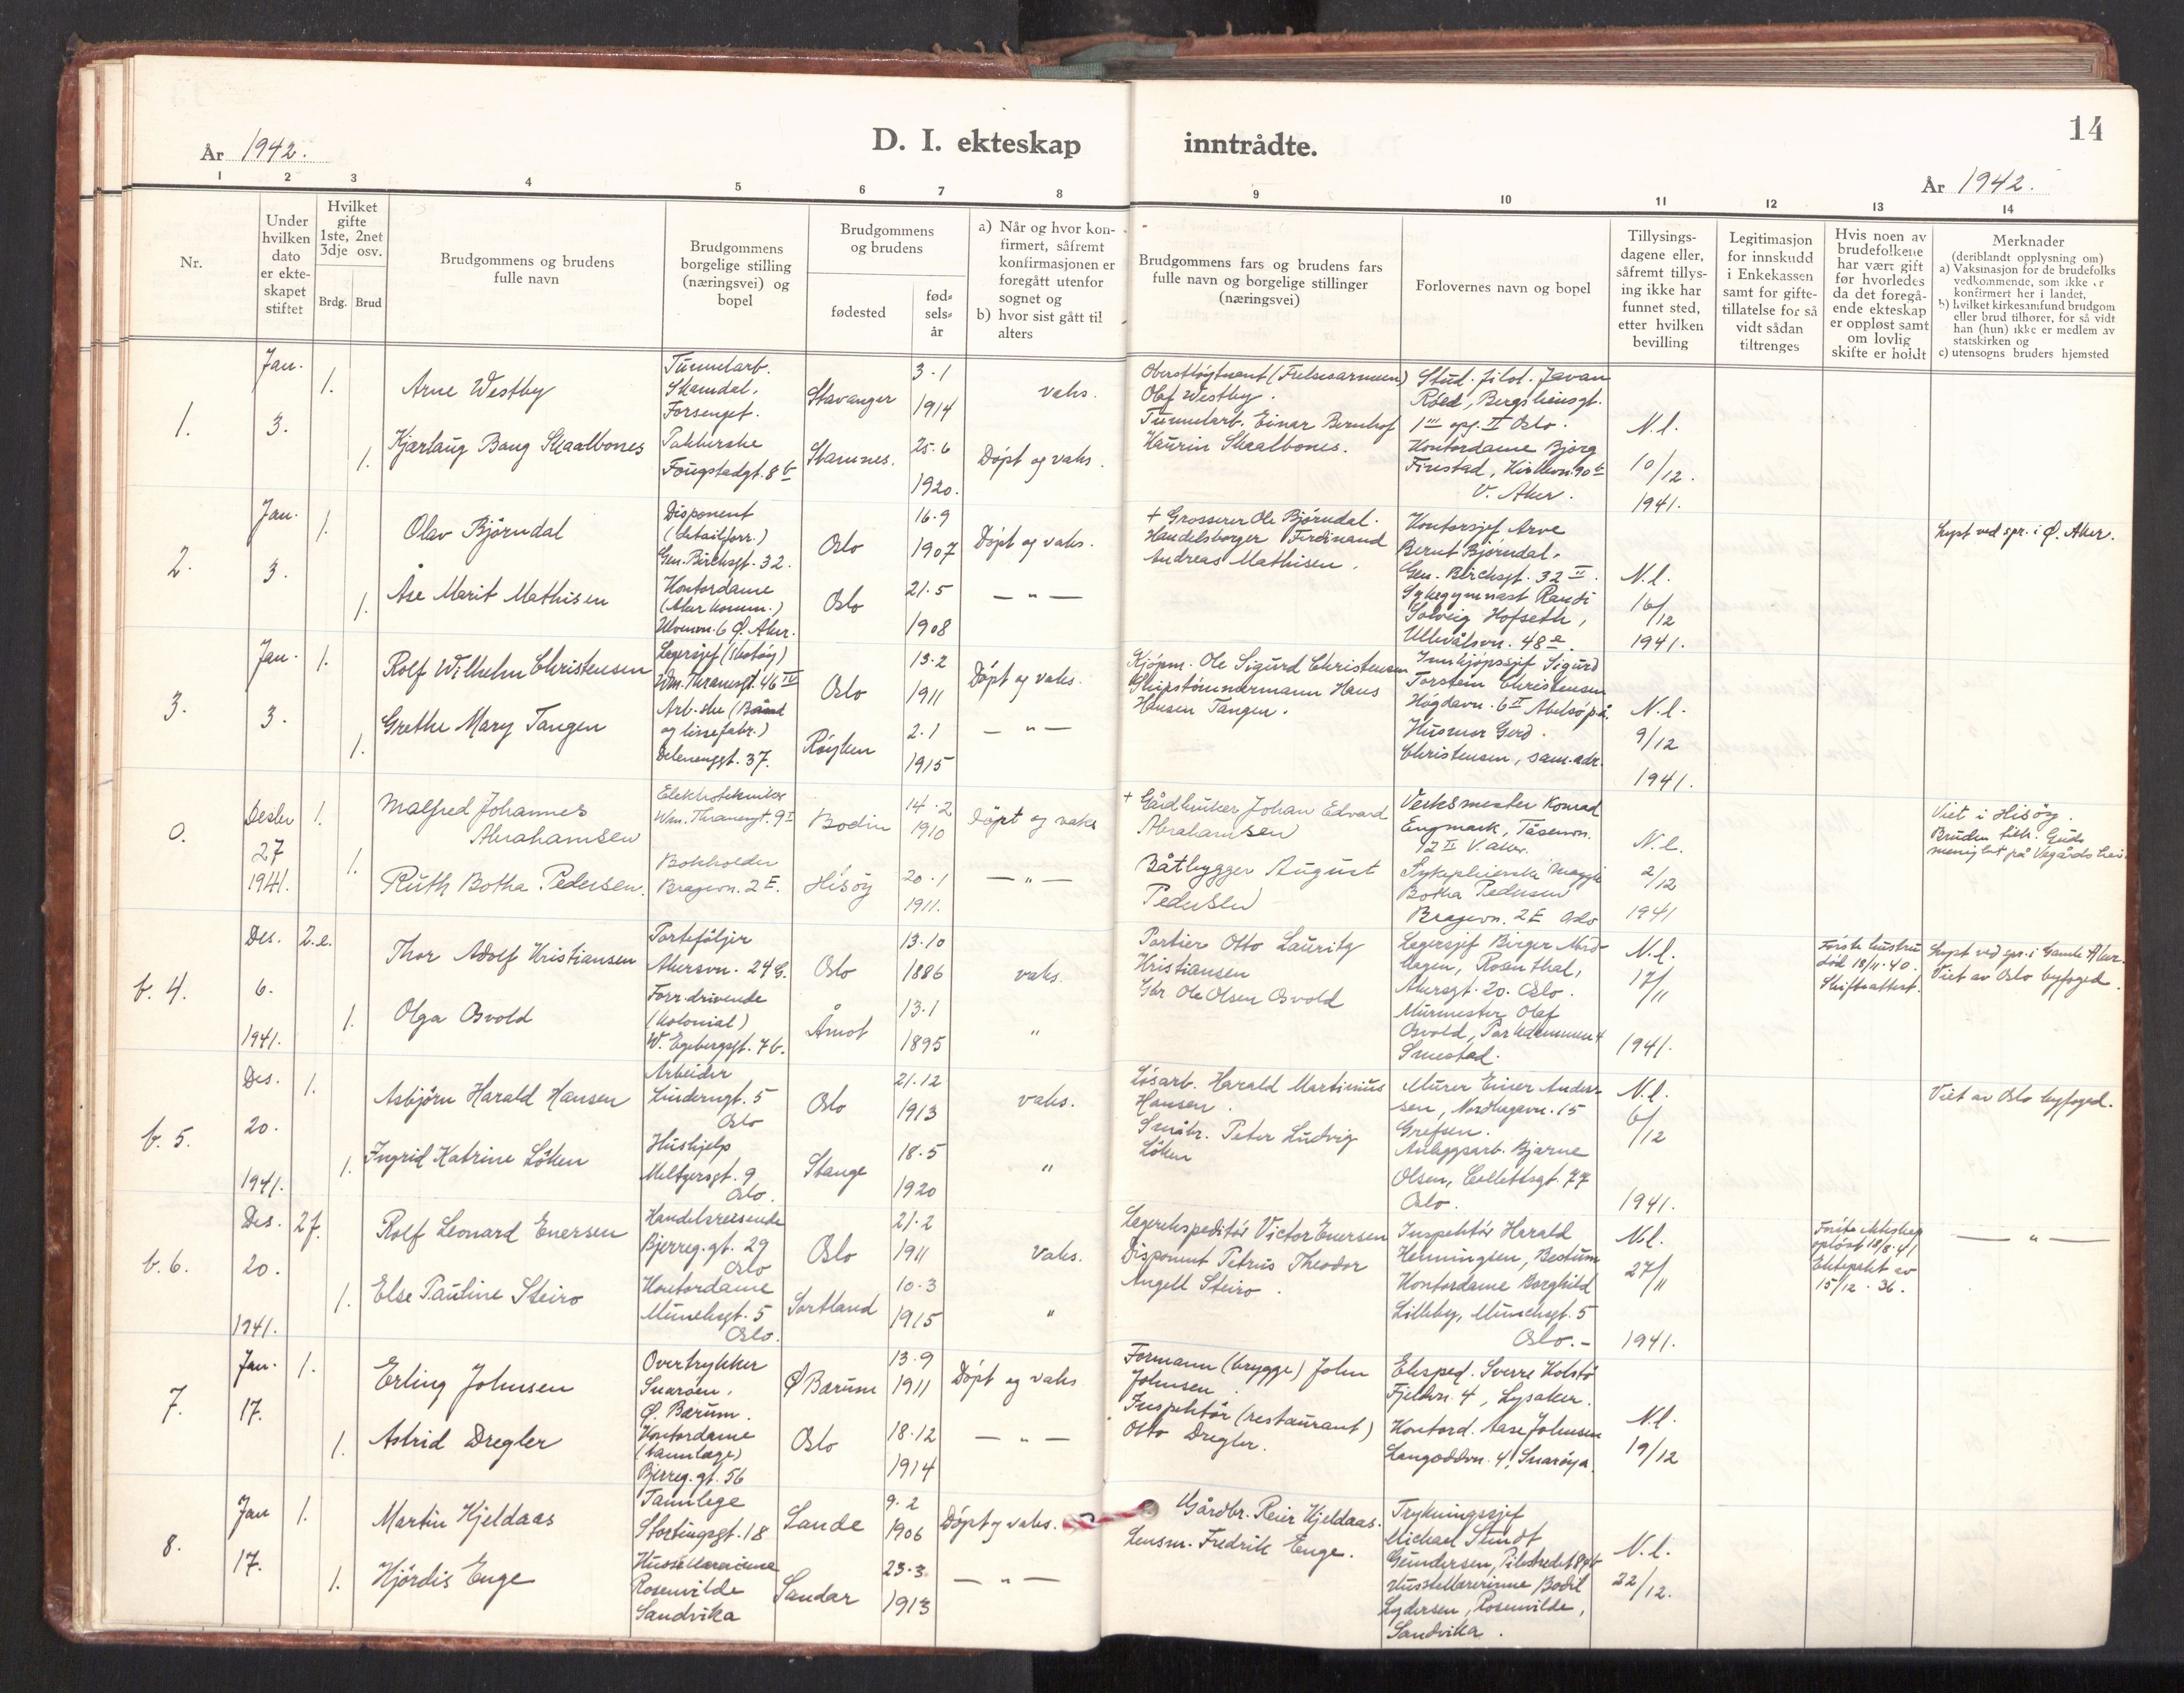 År 1942.
D. I. ekteskap inntrådte.
14
År 1942.
1 2 3 4 5 6 7 8 9 10 11 12 13 14
Nr.
Under hvilken dato er ekte-skapet stiftet
Hvilket gifte 1ste, 2net 3dje osv.
Brdg. Brud
Brudgommens og brudens fulle navn
Brudgommens borgelige stilling (næringsvei) og bopel
Brudgommens og brudens
fødested
fød-sels-år
a) Når og hvor kon-firmert, såfremt konfirmasjonen er foregått utenfor sognet og
b) hvor sist gått til alters
Brudgommens fars og brudens fars fulle navn og borgelige stillinger (næringsvei)
Forlovernes navn og bopel
Tillysings-dagene eller, såfremt tillys-ing ikke har funnet sted, etter hvilken bevilling
Legitimasjon for innskudd i Enkekassen samt for gifte-tillatelse for så vidt sådan tiltrenges
Hvis noen av brudefolkene har vært gift før hvorledes da det foregå-ende ekteskap er oppløst samt om lovlig skifte er holdt
Merknader
(deriblandt opplysning om)
a) Vaksinasjon for de brudefolks vedkommende, som ikke er konfirmert her i landet,
b) hvilket kirkesamfund brudgom eller brud tilhører, for så vidt han (hun) ikke er medlem av statskirken og
c) utensogns bruders hjemsted
1.
Jan.
3.
1.
Arne Westby
Skarndal,
Stavanger
3.1
1914
vaks.
Oberstløytnant (Frelsesarmeen)
Olaf Westby.
Stud. filol. Jevan
Roed, Bergsliensgt.
1 III opg. II Oslo.
1.
Kjærlaug Baug Skaalbones
Pakkerske
Fougstadgt. 8b
Stamnes.
25.6
1920.
Døpt og vaks.
Einar Bernhof
Kaurin Skaalbones.
Kontordame Bjørg
Finstad, Kirkevn. 90b
V. Aker.
N.l.
10/12.
1941.
2.
Jan.
3.
1.
Olav Bjørndal
Disponent
(detailforr.)
Gen. Birchsgt. 32.
Oslo
16.9
1907
Døpt og vaks.
+ Grosserer Ole Bjørndal.
Handelsborger Ferdinand
Andreas Mathisen.
Kontorsjef Arve
Bernt Bjørndal,
Gen. Birchsgt. 32 II.
1.
Åse Marit Mathisen
Kontordame
(Aker komm.)
Ulvenvn. 6 Ø. Aker.
Oslo
21.5
1908
— " —
Sykegymnast Randi
Solveig Hofseth,
Ullevålsvn. 48e.
N.l.
16/12
1941.
Lyst ved spr. i Ø. Aker.
3.
Jan.
3.
1.
Rolf Wilhelm Christensen
Lagersjef (skotøy)
Wm. Thranesgt. 46 IV
Oslo
13.2
1911
Døpt og vaks.
Kjøpm. Ole Sigurd Christensen
Skipstømmermann Hans
Hansen Tangen.
Innkjøpssjef Sigurd
Torstein Christensen
Høgdavn. 6 II Abelsø p.å.
1.
Grethe Mary Tangen
Arb.ske (Bånd
og lissefabr.)
Delenenggt. 37.
Røyken
2.1
1915
— " —
Husmor Gerd
Christensen, sam. adr.
N.l.
9/12
1941.
0.
Desbr
27
1941.
1.
Malfred Johannes
Abrahamsen
Elektrotekniker
Wm. Thranesgt. 9 I
Bodin
14.2
1910
Døpt og vaks
+ Gårdbruker Johan Edvard
Abrahamsen
Verksmester Konrad
Engmark, Tåsenvn.
12 II V. Aker.
1.
Ruth Botha Pedersen.
Bokholder
Bragevn. 2 E.
Hisøy
20.1
1911.
— " —
Båtbygger August
Pedersen
Botha Pedersen
Bragevn. 2 E Oslo
N.l.
2/12
1941
Viet i Hisøy.
Bruden tilh. Guds
menighet på Vegårdshei.
b. 4.
Des.
6.
1941.
2.e.
Thor Adolf Kristiansen
Porteføljer
Akersvn. 24 G.
Oslo
13.10
1886
vaks.
Portier Otto Lauritz
Kristiansen
Gbr Ole Olsen Osvold
Lagersjef Birger Nord-
hagen, Rosenthal,
Akersgt. 20. Oslo.
1.
Olga Osvold
Forr. drivende
(kolonial)
W. Egebergsgt. 7 b.
Åmot
13.1
1895
"
Murmester Olaf
Osvold,
Smestad.
N.l.
17/11
1941.
Første hustru
død 18/11.40.
Skifteattest.
Lyst ved spr. i Gamle Aker.
Viet av Oslo byfoged.
b. 5.
Des.
20.
1941.
1.
Asbjørn Harald Hansen
Arbeider
Linderngt. 5
Oslo
Oslo
21.12
1913
vaks.
Løsarb. Harald Martinius
Hansen.
Småbr. Peter Ludvig
Løken
Murer Einar Ander-
sen, Nordhagavn. 15
Grefsen.
1.
Ingrid Katrine Løken
Hushjelp
Meltzersgt. 9
Oslo.
Stange
18.5
1920
"
Anleggsarb. Bjarne
Olsen, Collettsgt. 77
Oslo.
N.l.
6/12
1941.
Viet av Oslo byfoged.
b. 6.
Des.
20.
1941.
2f.
Rolf Leonard Enersen
Handelsreisende
Bjerreg.gt. 29
Oslo
Oslo
21.2
1911
vaks.
Lagerekspeditør Victor Enersen
Disponent Petrus Theodor
Angell Steiro.
Inspektør Harald
Henningsen, Bestum
1.
Else Pauline Steiro
Kontordame
Munchsgt. 5
Oslo.
Sortland
10.3
1915
"
Kontordame Borghild
Lilleby, Munchsgt. 5
Oslo.-
N.l.
27/11
1941.
Første ekteskap
opløst 18/8.41
Ektepakt av
15/12.36.
— " —
7.
Jan.
17.
1.
Erling Johnsen
Overtrykker
Snarøen,
Ø. Bærum.
Ø Bærum
13.9
1911
Døpt og vaks
Formann (brygge) John
Johnsen.
Inspektør (restaurant)
Otto Dregler.
Eksped. Sverre Holstø
Fjeldvn. 4, Lysaker.
1.
Astrid Dregler
Kontordame
(tannlæge)
Bjerreg.gt. 56
Oslo
18.12
1914
— " —
Kontord. Aase Johnsen
Langoddvn. 41, Snarøya.
N.l.
19/12
8.
Jan
17.
1.
Martin Kjeldaas
Tannlege
Stortingsgt. 18
Sande
9.2
1906
Døpt og vaks.
Gårdbr. Reier Kjeldaas.
Lensm. Fredrik Enge.
Trykningssjef
Michael Stundt
Gundersen, Pilestredet 89b
1.
Hjørdis Enge
Husstellærerinne
Rosenvilde
Sandvika
Sandar
23.3
1913
— " —
Husstellærerinne Bodil
Lydersen, Rosenvilde,
Sandvika.
N.l.
22/12.